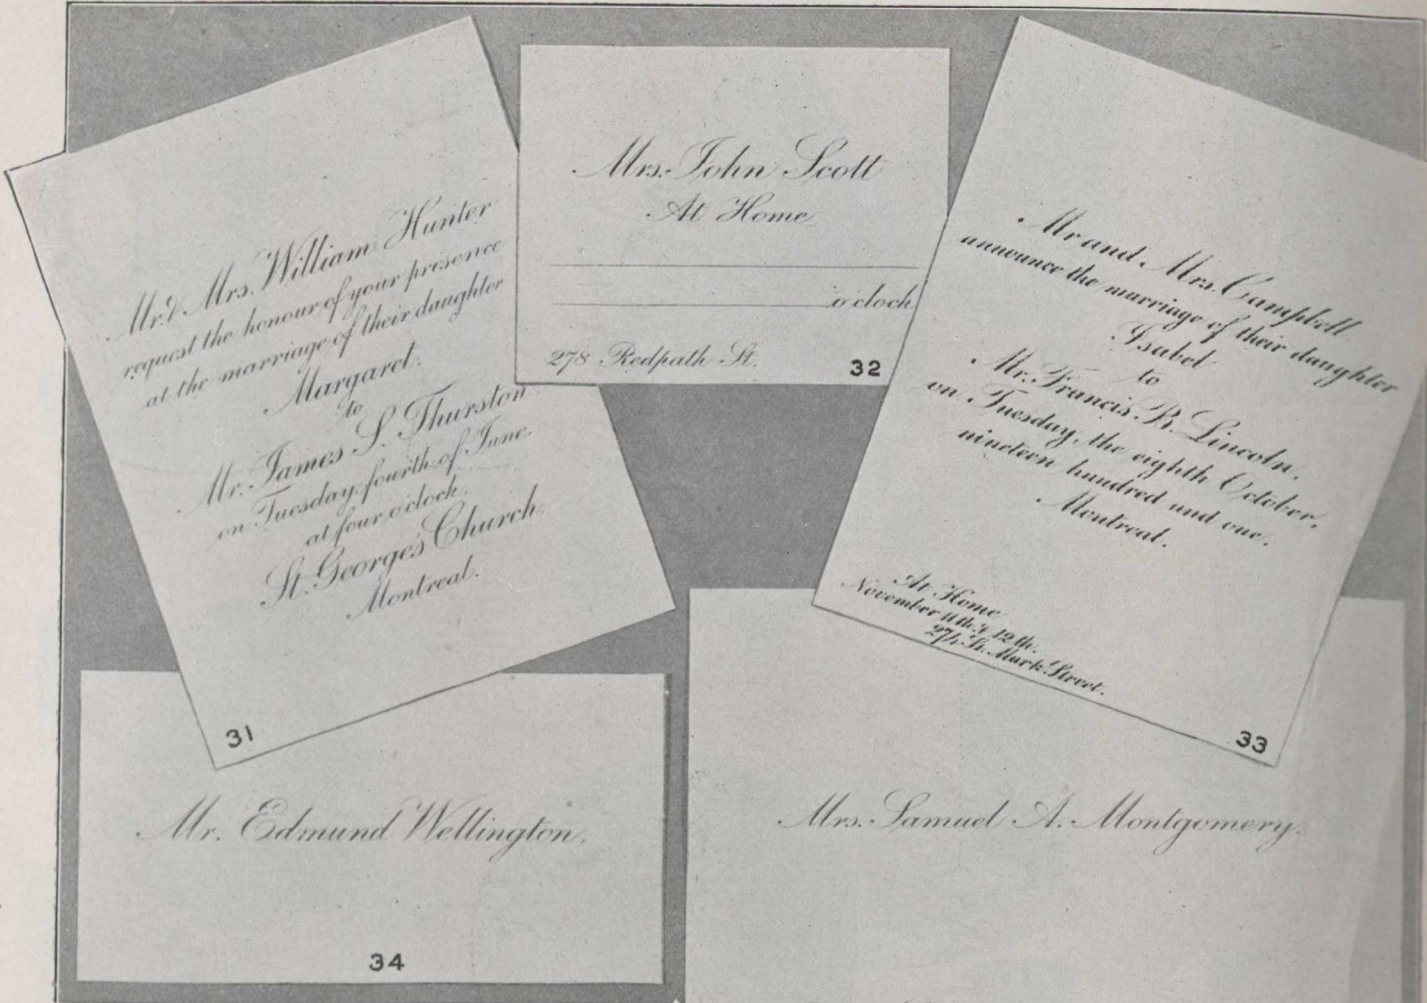 Mr. & Mrs. William Hunter
request the honour of your presence
at the marriage of their daughter
Margaret.
to
Mr. James S. Thurston
on Tuesday, fourth of June.
at four o'clock.
St. George's Church.
Montreal.
31
Mrs. John Scott
At Home
o'clock
278 Redpath St.
32
Mr and Mrs. Campbell
announce the marriage of their daughter
Isabel
to
Mr. Francis R. Lincoln,
on Tuesday, the eighth October,
nineteen hundred and one.
Montreal.
At Home
November 11th & 12th.
St. Mark Street.
33
Mr. Edmund Wellington.
34
Mrs. Samuel A. Montgomery.